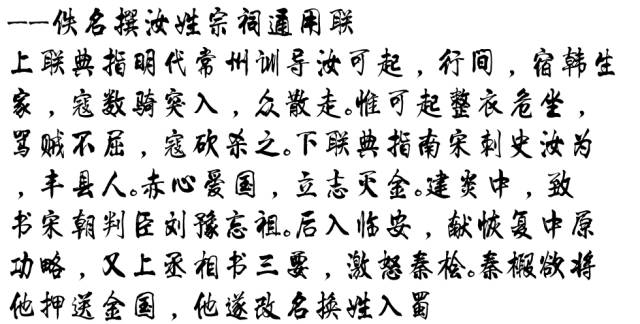 ——佚名撰汝姓宗祠通用联
上联典指明代常州训导汝可起，行间，宿韩生
家，寇数骑突入，众散走。惟可起整衣危坐，
骂贼不屈，寇砍杀之。下联典指南宋刺史汝为
，丰县人。赤心爱国，立志灭金。建炎中，致
书宋朝判臣刘豫忘祖。后入临安，献恢复中原
功略，又上丞相书三要，激怒秦桧。秦桧欲将
他押送金国，他遂改名换姓入蜀